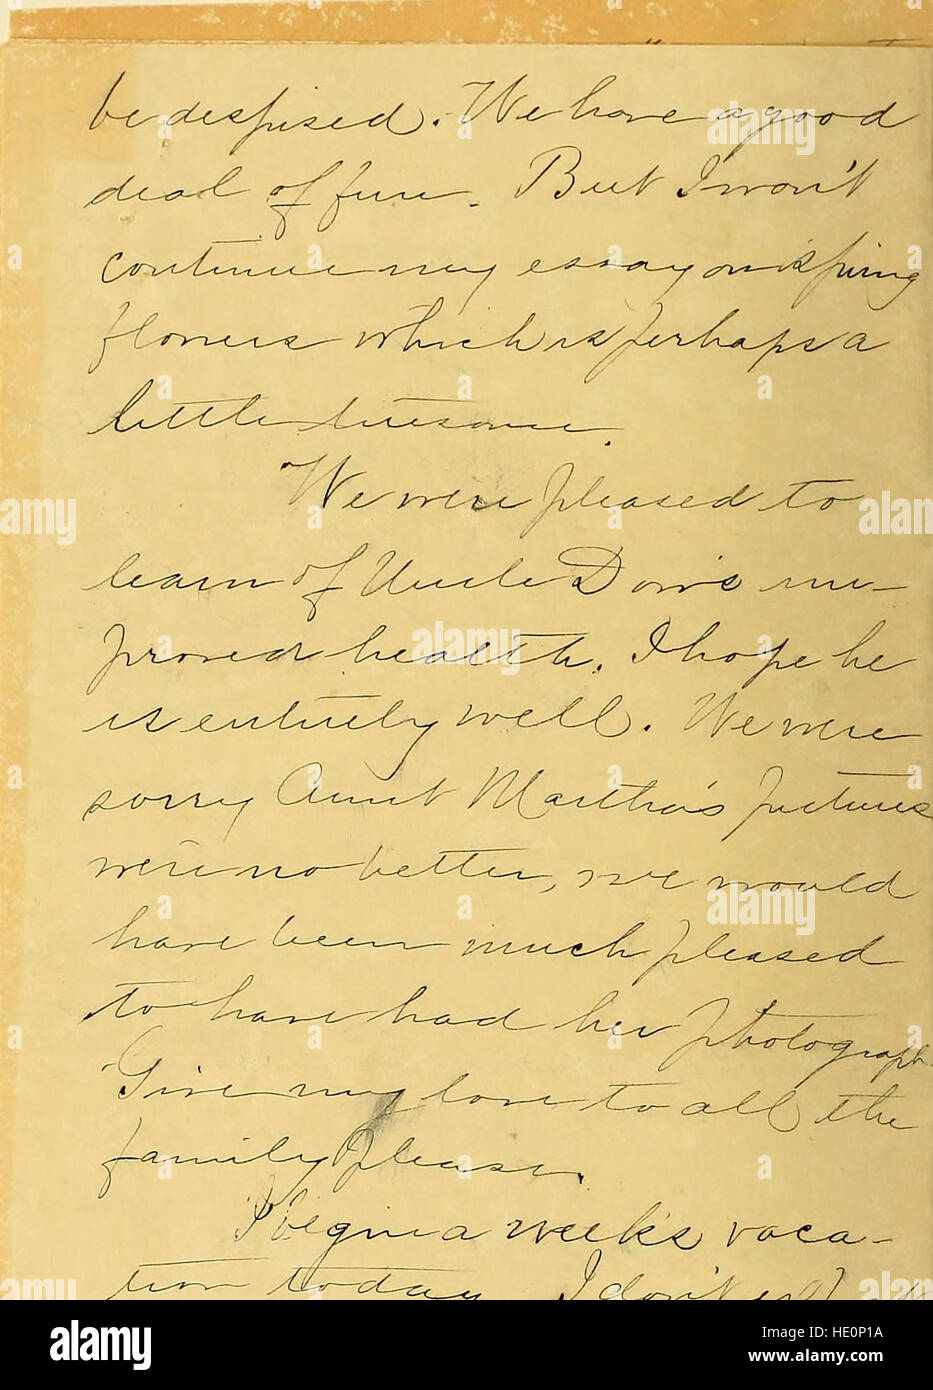 be despised. We have a good
deal of fun. But I won't
continue my essay on spring
flowers which is perhaps a
little tiresome.
We were pleased to
learn of Uncle Don's im-
proved health. I hope he
is entirely well. We were
sorry Aunt Martha's pictures
were no better, we would
have been much pleased
to have had her photograph.
Give my love to all the
family please.
I begin a week's vaca-
tion today I don't
alamy stock photo
HE0P1A
www.alamy.com